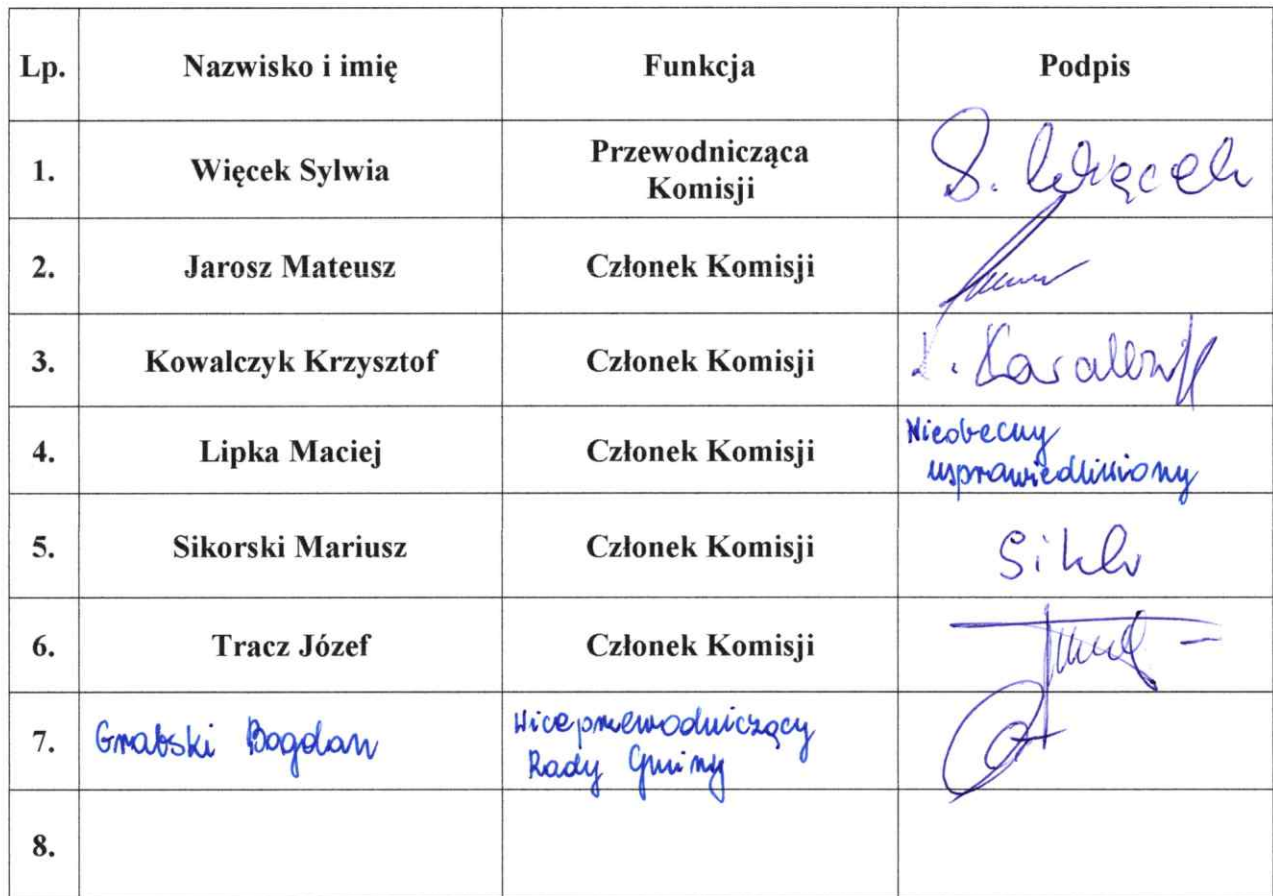 Lp. Nazwisko i imię Funkcja Podpis
1. Więcek Sylwia Przewodnicząca
Komisji S. Więcek
2. Jarosz Mateusz Członek Komisji
3. Kowalczyk Krzysztof Członek Komisji
4. Lipka Maciej Członek Komisji Nieobecny
usprawiedliwiony
5. Sikorski Mariusz Członek Komisji
6. Tracz Józef Członek Komisji
7. Grabski Bogdan Wiceprzewodniczący
Rady Gminy
8.